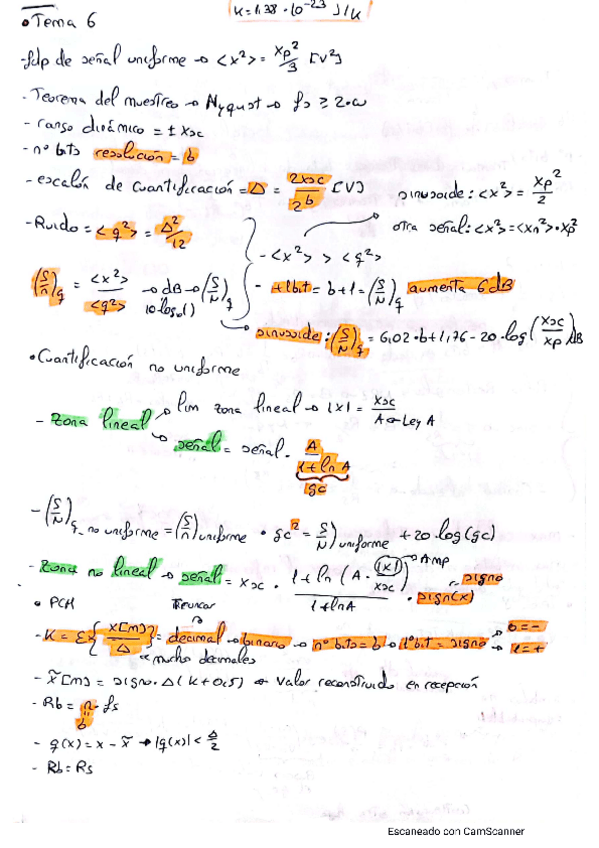 K=1,38 · 10^-23 J/K
• Tema 6
- fdp de señal uniforme → <x²> = xp²/3 [V²]
- Teorema del muestreo → Nyquist → fs ≥ 2·ω
- rango dinámico = ± xsc
- nº bits resolución = b
- escalón de cuantificación = Δ = 2xsc/2^b [V]
sinusoide: <x²> = xp²/2
- Ruido = <q²> = Δ²/12
otra señal: <x²> = <xn²>·xp²
- <x²> > <q²>
(S/n)q = <x²>/<q²> → dB → (S/N)q
10log()
- +1bit = b+1 = (S/N)q aumenta 6dB
sinusoide: (S/N)q = 6,02·b+1,76 - 20·log(xsc/xp) dB
• Cuantificación no uniforme
- Zona lineal → lim zona lineal → |x| = xsc/A → Ley A
señal = señal · A/(1+lnA)
gc
- (S/N)q no uniforme = (S/n)uniforme · gc² = S/N)uniforme + 20·log(gc)
- Zona no lineal → señal = xsc · (1+ln(A·|x|/xsc))/(1+lnA) · sign(x)
Amp
signo
• PCM
Truncar
- K = E{x[m]/Δ} = decimal → binario → nº bits = b → 1ºbit = signo
0=-
1=+
mucho decimales
- x̃[m] = signo·Δ(K+0,5) ← valor reconstruido en recepción
- Rb = n·fs
b
- q(x) = x - x̃ → |q(x)| < Δ/2
- Rb = Rs
Escaneado con CamScanner